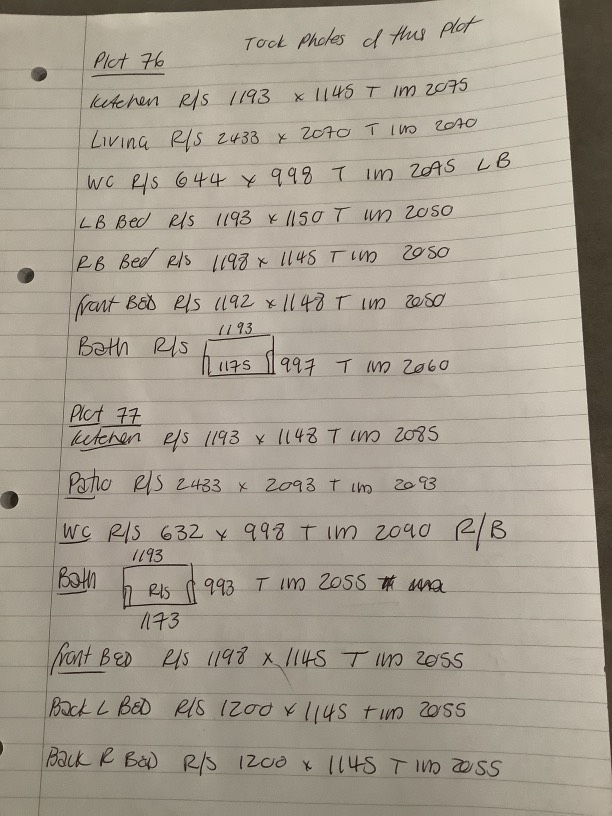 Took photos of this plot
Plot 76
Kitchen R/S 1193 x 1145 T Im 2075
Living R/S 2433 x 2070 T Im 2070
WC R/S 644 x 998 T Im 2095 LB
LB Bed R/S 1193 x 1150 T Im 2050
RB Bed R/S 1198 x 1145 T Im 2050
front BED R/S 1192 x 1148 T Im 2050
1193
Bath R/S 1175 997 T Im 2060
Plot 77
Kitchen R/S 1193 x 1148 T Im 2085
Patio R/S 2433 x 2093 T Im 2093
WC R/S 632 x 998 T Im 2090 R/B
1193
Bath R/S 993 T Im 2055
1173
front BED R/S 1198 x 1145 T Im 2055
Back L BED R/S 1200 x 1145 T Im 2055
Back R BED R/S 1200 x 1145 T Im 2055